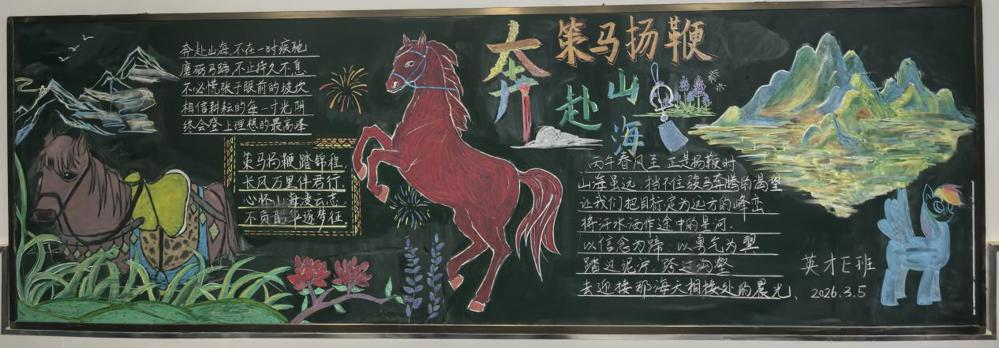 奔赴山海
策马扬鞭
奔赴山海,不在一时疾驰
磨砺马蹄,不止持久不息
不必慌张于眼前的坡坎
相信耕耘的每一寸光阴
终会登上理想的最高峰
策马扬鞭踏锦程
长风万里伴君行
心怀山海凌云志
不负韶华逐梦征
丙午春风至 正是扬鞭时
山海虽远,挡不住骏马奔腾的渴望
让我们把目标定为远方的峰峦
将汗水洒作途中的星河.
以信念为蹄,以勇气为翼
踏过泥泞,跨过沟壑
去迎接那海天相接处的晨光、
英才E班
2026.3.5